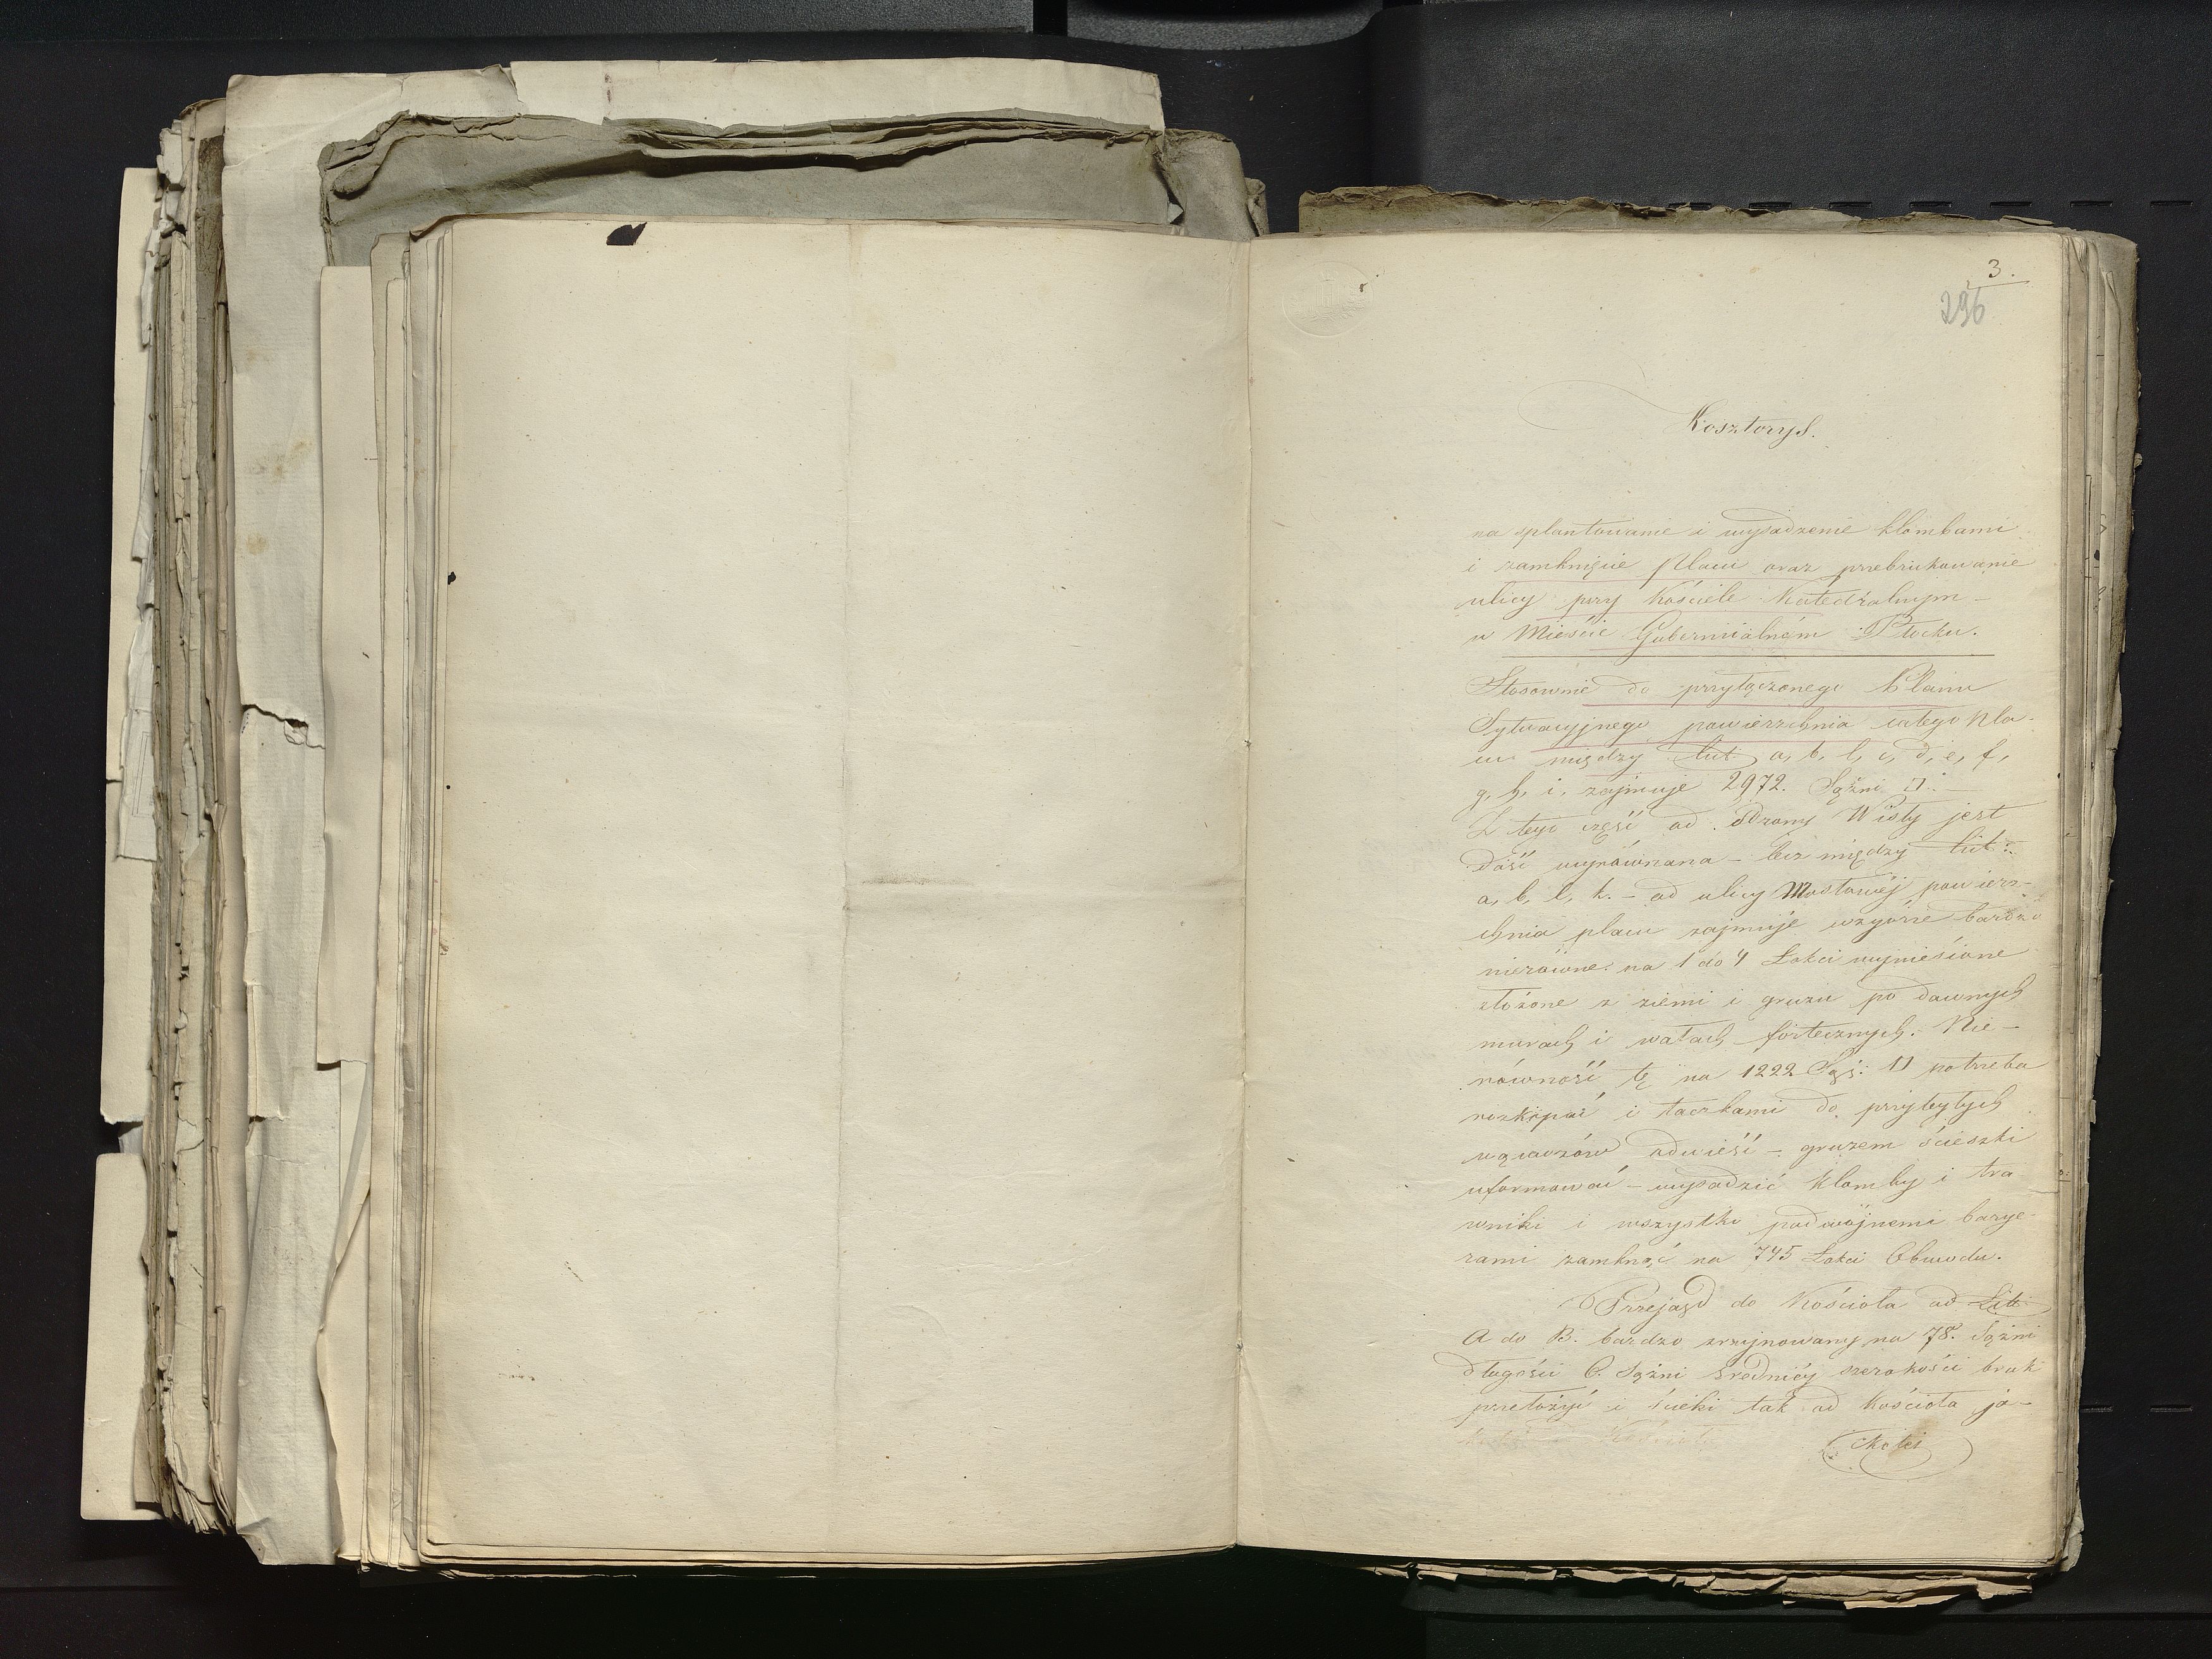 3.
296
Kosztorys.
na splantowanie i wysadzenie klombami
i zamknięcie placu oraz przebrukowanie
ulicy przy Kościele Katedralnym –
w Mieście Gubernialném Płocku.
Stosownie do przyłączonego Planu
Sytuacyjnego powierzchnia całego Pla-
cu między Lit. a, b, l, c, d, e, f,
g, h, i, zajmuje 2972. Sążni □.
Z tego część od strony Wisły jest
dość wyrównana – lecz między Lit:
a, b, l, k. – od ulicy Mostowéj powierz-
chnia placu zajmuje wzgórze bardzo
nierówne na 1 do 4 Łokci wyniesione
złożone z ziemi i gruzu po dawnych
murach i wałach fortecznych. Nie-
równość tę na 1222 Sąż: □ potrzeba
rozkopać i taczkami do przyległych
wąwozów odwieść – gruzem ścieszki
uformować – wysadzić klomby i tra
wniki i wszystko podwójnemi barye-
rami zamknąć na 745 Łokci Obwodu.
Przejazd do Kościoła od Lit:
A do B. bardzo zrujnowany na 78. Sążni
długości 6. Sążni średniéj szerokości bruk
przełożyć i ścieki tak od Kościoła ja-